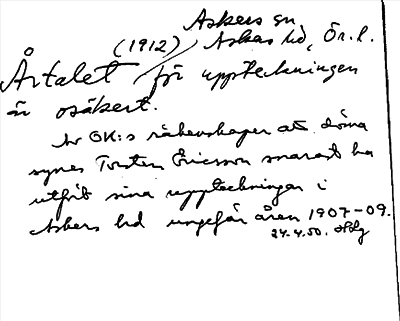 Askers sn
(1912), Askers hd, Ör. l.
Årtalet för uppteckningen
är osäkert.
Av GK:s räkenskaper att döma
synes Torsten Ericsson snarast ha
utfört sina uppteckningar i
Askers hd ungefär åren 1907-09.
24.4.50.